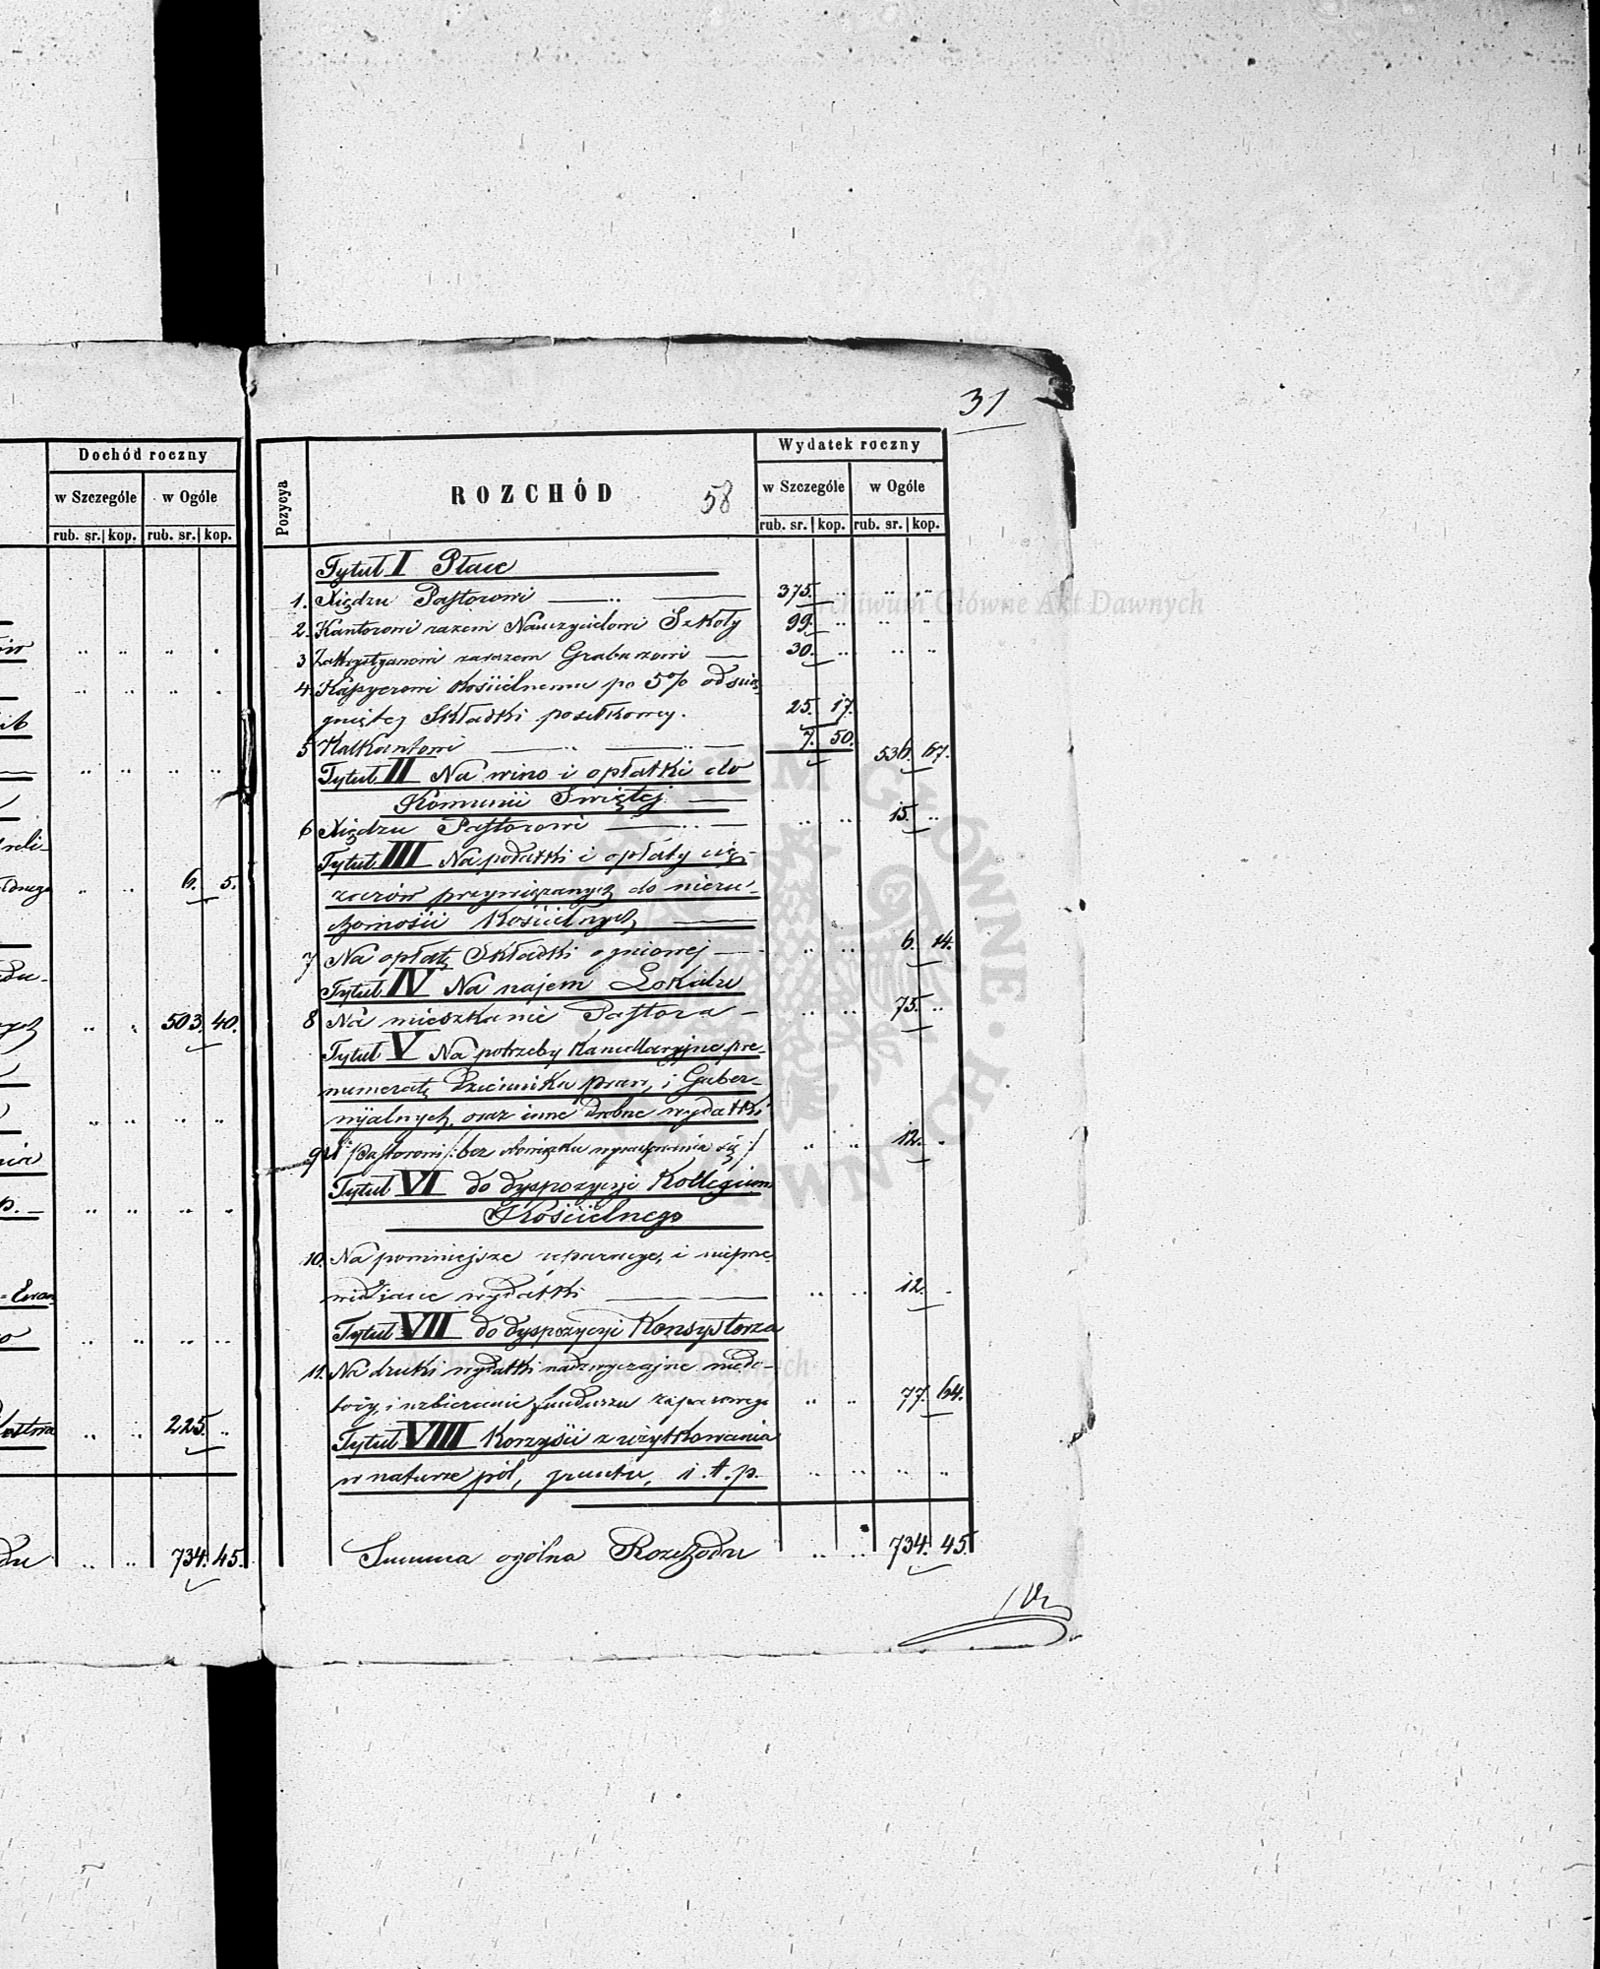 31
Dochód roczny
w Szczególe w Ogóle
rub. sr. kop. rub. sr. kop.
6. 5.
503. 40.
225. ..
734. 45.
Pozycya
ROZCHÓD
58
Wydatek roczny
w Szczególe w Ogóle
rub. sr. kop. rub. sr. kop.
Tytuł I Płace
1. Xiędzu Pastorowi 375. ..
2. Kantorowi razem Nauczycielowi Szkoły 99. ..
3 Zakrystyanowi zarazem Grabarzowi 30. ..
4. Kassyerowi Kościelnemu po 5% od ścią-
gniętej Składki posiłkowey. 25. 17.
5 Kalkantowi 7. 50. 536. 67.
Tytuł II Na wino i opłatki do
Komunii Świętej
6 Xiędzu Pastorowi 15. ..
Tytuł III Na podatki i opłaty cię-
żarów przywiązanych do nieru-
chomości Kościelnych
7 Na opłatę Składki ogniowej 6. 14.
Tytuł IV Na najem Lokalu
8 Na mieszkanie Pastora 75. ..
Tytuł V Na potrzeby Kancellaryjne pre-
numeratę Dziennika praw, i Guber-
nijalnych, oraz inne drobne wydatki
9 Pastorowi /: bez obowiązku wyrachowania się :/ 12. ..
Tytuł VI do dyspozycyi Kollegium
Kościelnego
10. Na pomniejsze reparacye, i nieprze-
widziane wydatki 12. ..
Tytuł VII do dyspozycyi Konsystorza
11. Na druki wydatki nadzwyczajne niedo-
bory, i uzbieranie funduszu zapasowego 77. 64.
Tytuł VIII Korzyści z użytkowania
w naturze pól, gruntu, i.t.p.
Summa ogólna Rozchodu 734. 45.
Archiwum Główne Akt Dawnych